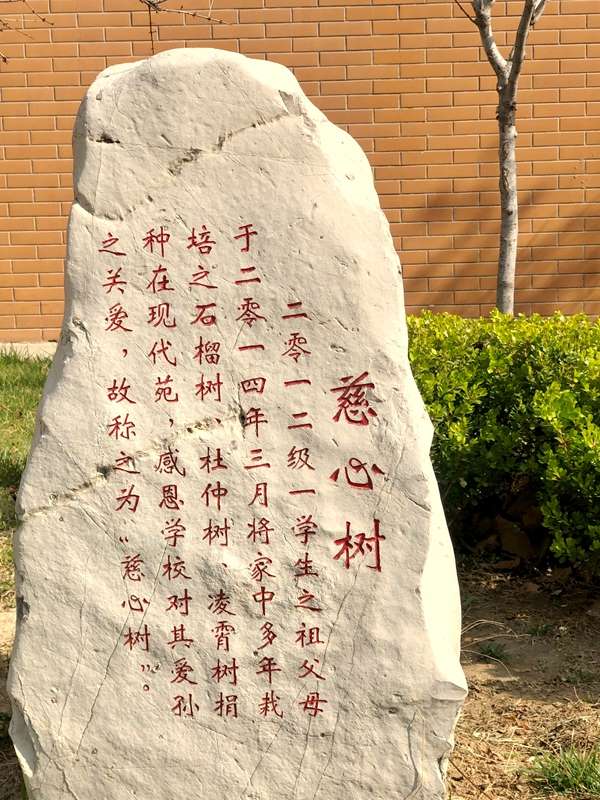 慈心树
二零一二级一学生之祖父母
于二零一四年三月将家中多年栽
培之石榴树、杜仲树、凌霄树捐
种在现代苑，感恩学校对其爱孙
之关爱，故称之为“慈心树”。